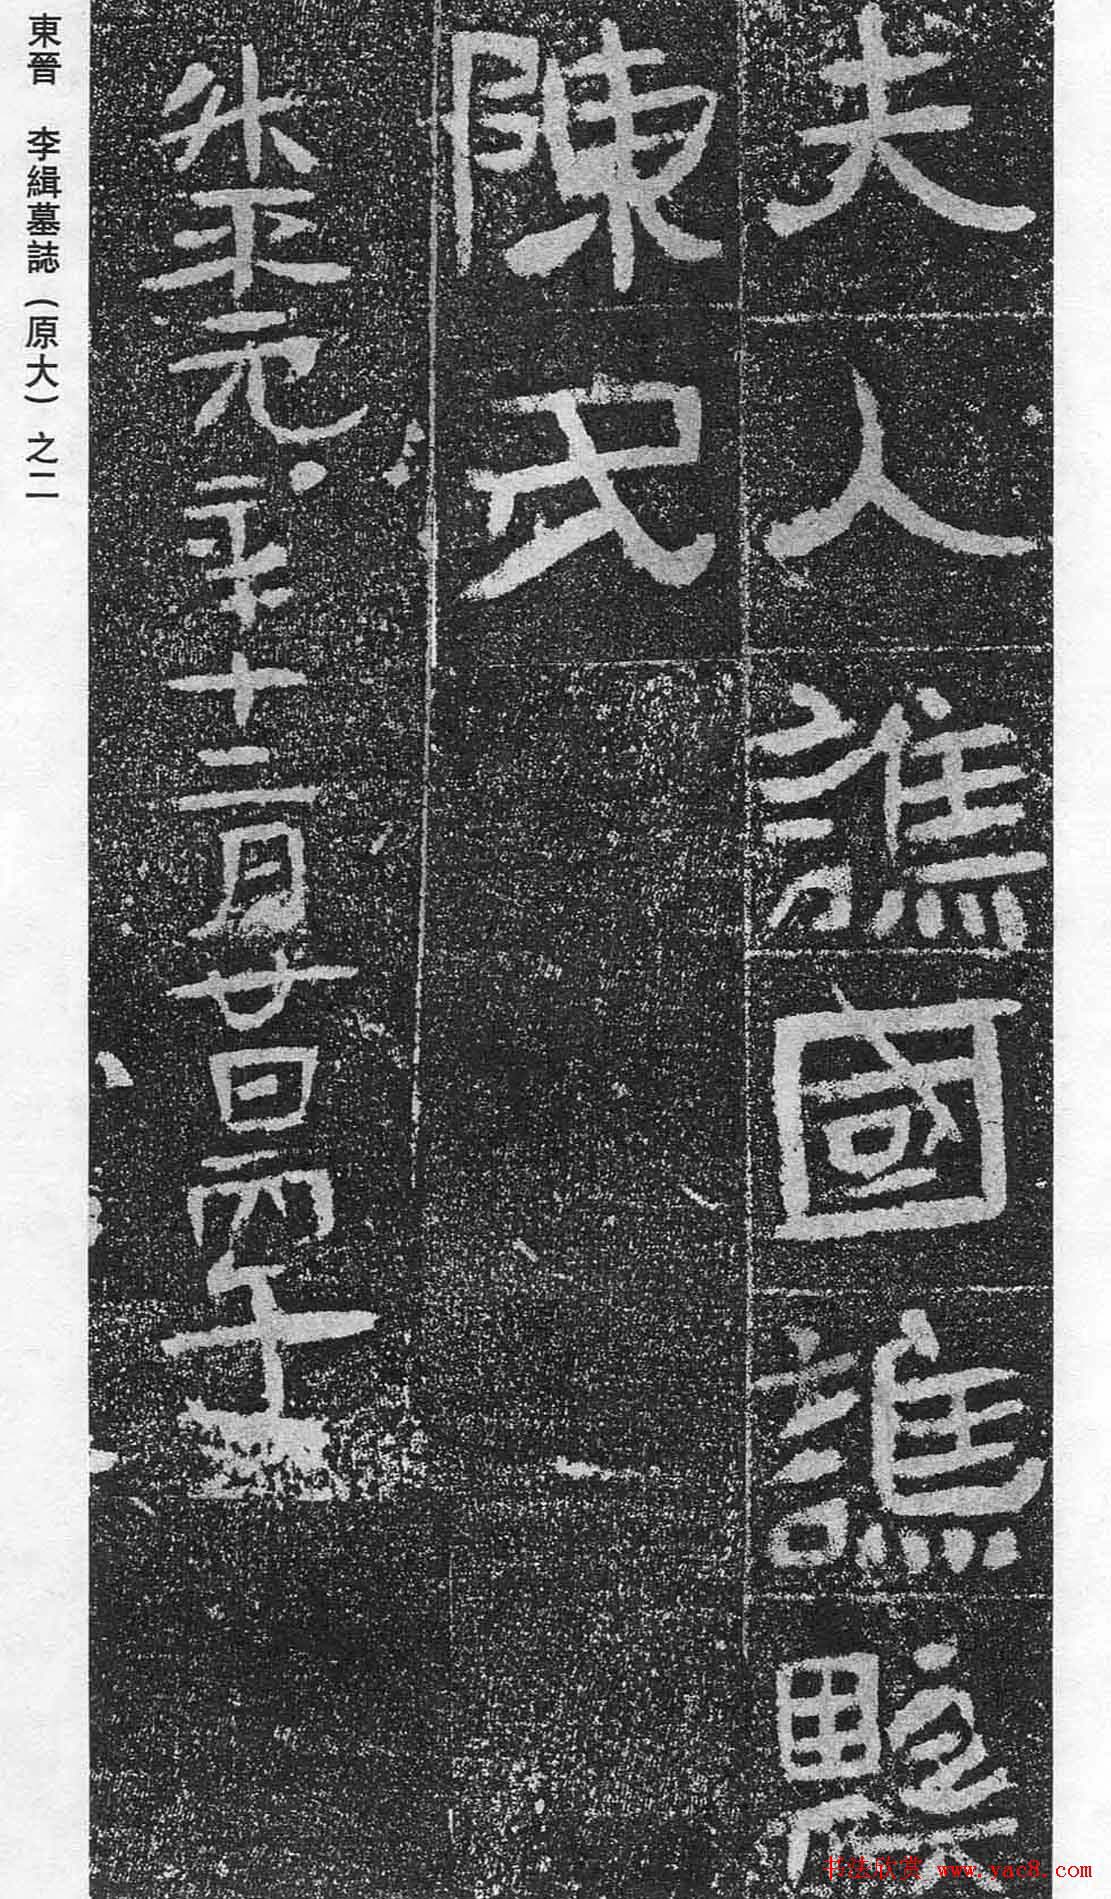 夫人譙國譙縣
陳氏
升平元年十二月廿日丙午
東晉 李緝墓誌（原大）之二
书法欣赏 www.yac8.com